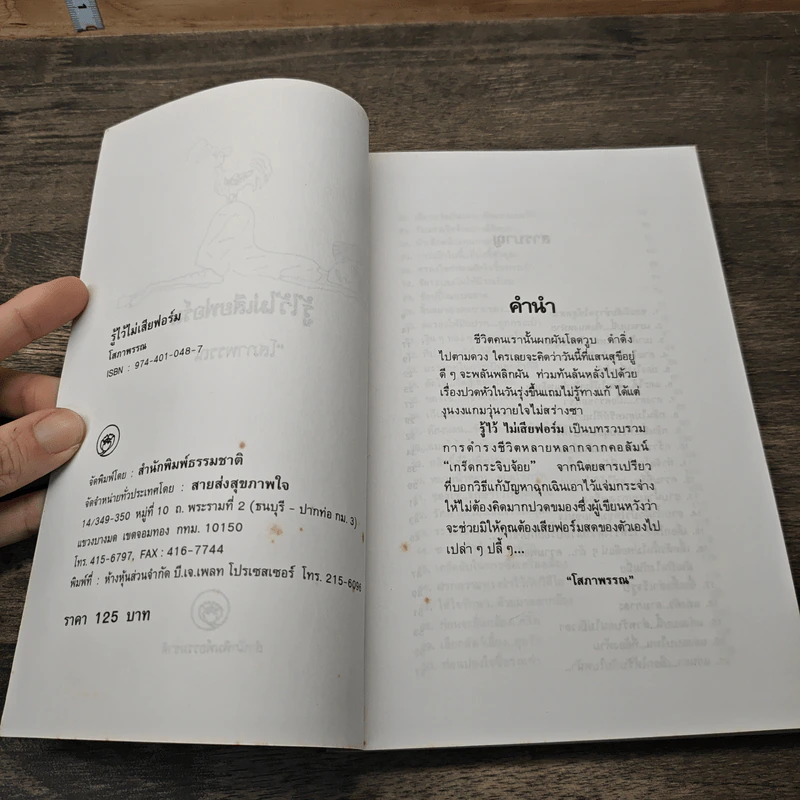 รู้ไว้ไม่เสียฟอร์ม
โสภาพรรณ
ISBN : 974-401-048-7
จัดพิมพ์โดย : สำนักพิมพ์ธรรมชาติ
จัดจำหน่ายทั่วประเทศโดย : สายส่งสุขภาพใจ
14/349-350 หมู่ที่ 10 ถ. พระรามที่ 2 (ธนบุรี - ปากท่อ กม. 3)
แขวงบางมด เขตจอมทอง กทม. 10150
โทร. 415-6797, FAX : 416-7744
พิมพ์ที่ : ห้างหุ้นส่วนจำกัด บี.เจ.เพลท โปรเซสเซอร์ โทร. 215-6096
ราคา 125 บาท
คำนำ
ชีวิตคนเรานั้นผกผันโลดวูบ ดำดิ่ง
ไปตามดวง ใครเลยจะคิดว่าวันนี้ที่แสนสุขีอยู่
ดี ๆ จะพลันพลิกผัน ท่วมท้นล้นหลั่งไปด้วย
เรื่องปวดหัวในวันรุ่งขึ้นแถมไม่รู้ทางแก้ ได้แต่
งุนงงแกมวุ่นวายใจไม่สร่างซา
รู้ไว้ ไม่เสียฟอร์ม เป็นบทรวบรวม
การดำรงชีวิตหลายหลากจากคอลัมน์
“เกร็ดกระจิบจ้อย” จากนิตยสารเปรียว
ที่บอกวิธีแก้ปัญหาฉุกเฉินเอาไว้แจ่มกระจ่าง
ให้ไม่ต้องคิดมากปวดขมองซึ่งผู้เขียนหวังว่า
จะช่วยมิให้คุณต้องเสียฟอร์มสดของตัวเองไป
เปล่า ๆ ปลี้ ๆ...
“โสภาพรรณ”